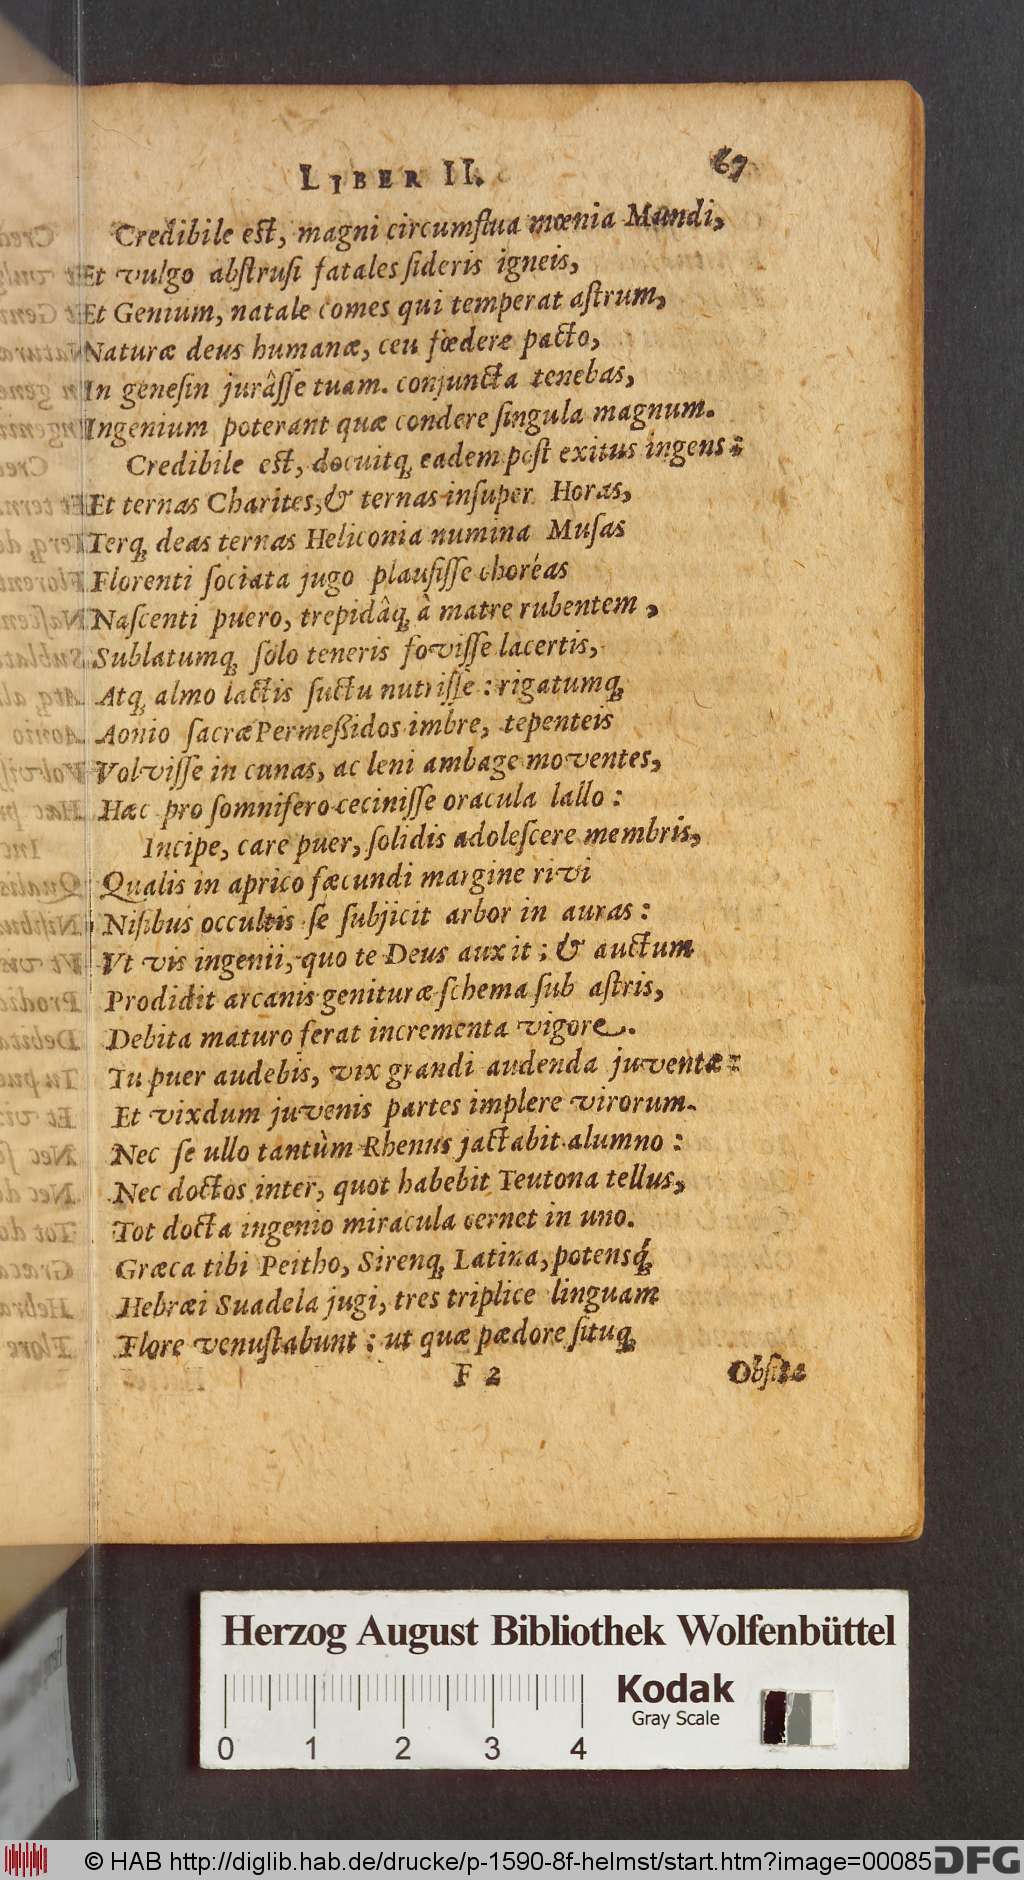 LIBER II. 67
Credibile eſt, magni circumflua mœnia Mundi,
Et vulgo abſtruſi fatales ſideris igneis,
Et Genium, natale comes qui temperat aſtrum,
Naturæ deus humanæ, ceu fœdere pacto,
In geneſin jurâſſe tuam. conjuncta tenebas,
Ingenium poterant quæ condere ſingula magnum.
Credibile eſt, docuitq́; eadem poſt exitus ingens:
Et ternas Charites, & ternas inſuper Horas,
Terq; deas ternas Heliconia numina Muſas
Florenti ſociata jugo plauſiſſe choréas
Naſcenti puero, trepidâq; à matre rubentem,
Sublatumq; ſolo teneris foviſſe lacertis,
Atq; almo lactis ſuctu nutriſſe: rigatumq;
Aonio ſacræ Permeßidos imbre, tepenteis
Volviſſe in cunas, ac leni ambage moventes,
Hæc pro ſomnifero ceciniſſe oracula lallo:
Incipe, care puer, ſolidis adoleſcere membris,
Qualis in aprico fæcundi margine rivi
Niſibus occultis ſe ſubjicit arbor in auras:
Vt vis ingenii, quo te Deus auxit; & auctum
Prodidit arcanis genituræ ſchema ſub aſtris,
Debita maturo ferat incrementa vigore.
Tu puer audebis, vix grandi audenda juventæ:
Et vixdum juvenis partes implere virorum.
Nec ſe ullo tantùm Rhenus jactabit alumno:
Nec doctos inter, quot habebit Teutona tellus,
Tot docta ingenio miracula cernet in uno.
Græca tibi Peitho, Sirenq; Latina, potensq́;
Hebræi Suadela jugi, tres triplice linguam
Flore venuſtabunt: ut quæ pædore ſituq;
F 2 Obſita
Herzog August Bibliothek Wolfenbüttel
Kodak
Gray Scale
0 1 2 3 4
© HAB http://diglib.hab.de/drucke/p-1590-8f-helmst/start.htm?image=00085 DFG